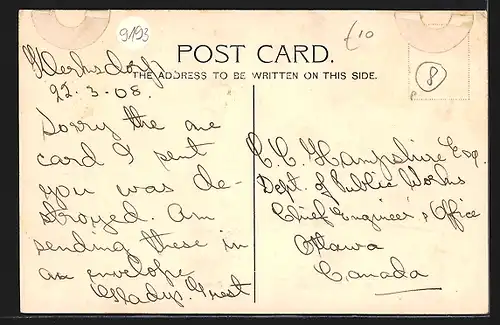 9/93
£10
POST CARD.
THE ADDRESS TO BE WRITTEN ON THIS SIDE.
8
Klerksdorp
22.3.08.
Sorry the one
card I sent
you was de-
stroyed. Am
sending these in
an envelope
Gladys. Guest
C.C. Hampshire Esq.
Dept. of Public Works
Chief Engineer's Office
Ottawa
Canada